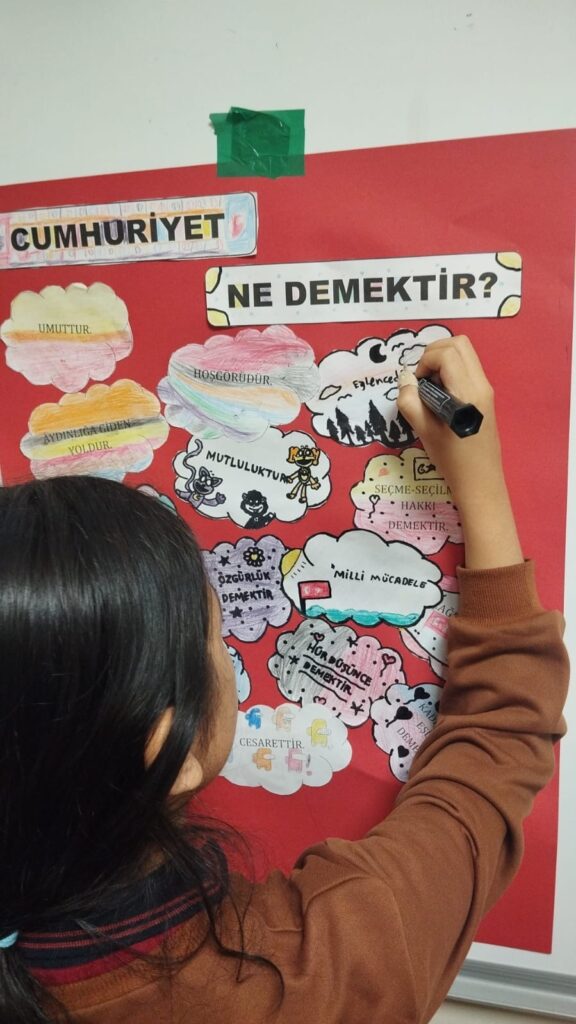 CUMHURİYET
NE DEMEKTİR?
UMUTTUR.
HOŞGÖRÜDÜR.
AYDINLIĞA GİDEN
YOLDUR.
MUTLULUKTUR
SEÇME-SEÇİLM
HAKKI
DEMEKTİR.
ÖZGÜRLÜK
DEMEKTİR
MİLLİ MÜCADELE
HÜR DÜŞÜNCE
DEMEKTİR
CESARETTİR.